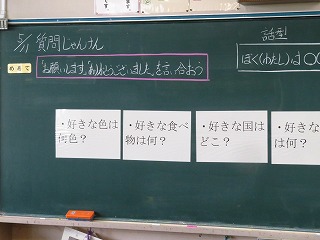 5/11 質問じゃんけん
めあて
"お願いします。""ありがとうございました。"を言い合おう
話型
ぼく(わたし)は〇〇
・好きな色は
何色？
・好きな食べ
物は何？
・好きな国は
どこ？
・好きな
は何？